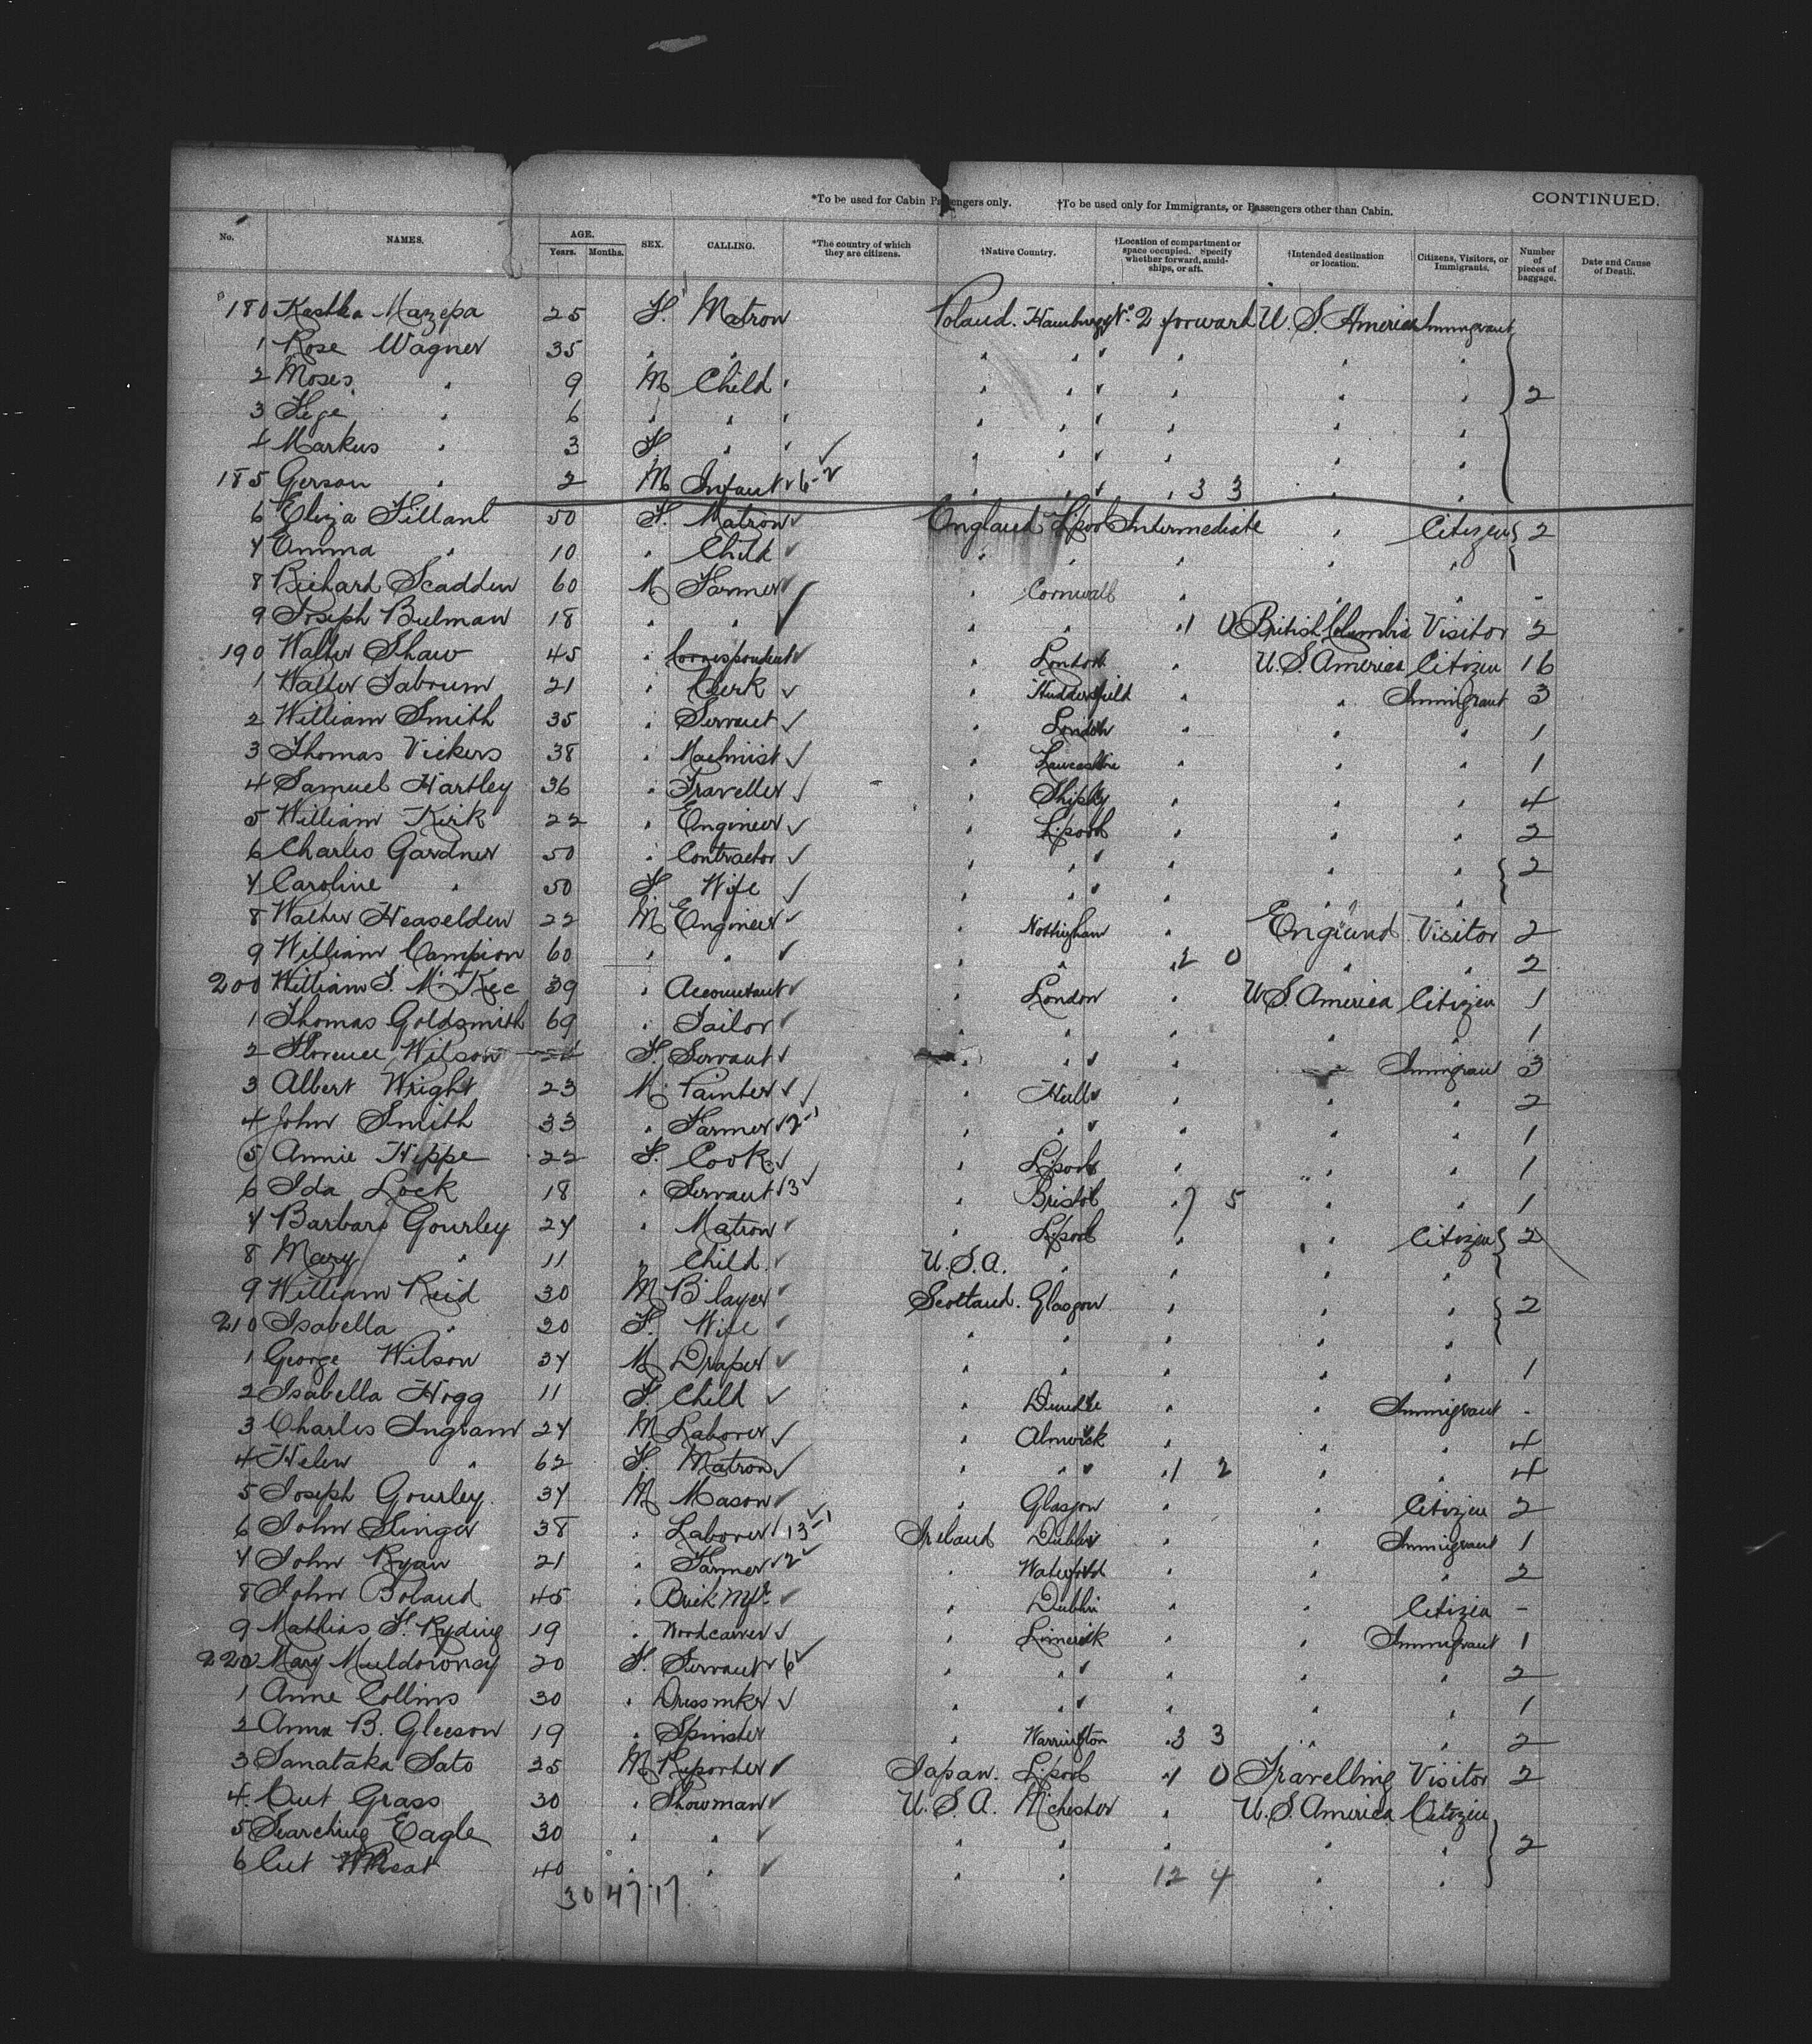 *To be used for Cabin Passengers only. †To be used only for Immigrants, or Passengers other than Cabin. CONTINUED.
No. NAMES. AGE. Years. Months. SEX. CALLING. *The country of which they are citizens. †Native Country. †Location of compartment or space occupied. Specify whether forward, amidships, or aft. †Intended destination or location. Citizens, Visitors, or Immigrants. Number of pieces of baggage. Date and Cause of Death.
180 Mazepa 25 F. Matron Poland. Hamburg No. 2 forward U. S. America Immigrant
1 Rose Wagner 35 " " " " " " "
2 Moses " 9 M Child " " " " " " 2
3 Fege " 6 " " " " " " " "
4 Markus " 3 F. " " " " " " "
185 Gerson " 2 M Infant 6-2 " " " 3 3 " "
6 Eliza 50 F. Matron England L'pool Intermediate " Citizen 2
7 Emma " 10 " Child " " " " "
8 Richard Scadden 60 M. Farmer " Cornwall " " " -
9 Joseph Bulman 18 " " " " " 1 0 British Columbia Visitor 2
190 Walter Shaw 45 " Correspondent " London " U. S. America Citizen 16
1 Walter Jabrum 21 " Clerk " Huddersfield " " Immigrant 3
2 William Smith 35 " Servant " London " " " 1
3 Thomas Vickers 38 " Machinist " Lancashire " " " 1
4 Samuel Hartley 36 " Traveller " Shipley " " " 4
5 William Kirk 22 " Engineer " L'pool " " " 2
6 Charles Gardner 50 " Contractor " " " " " 2
7 Caroline " 50 F. Wife " " " " "
8 Walter Heaselden 22 M Engineer " Nottingham " England Visitor 2
9 William Campion 60 " " " " " 2 0 " " 2
200 William J. McKee 39 " Accountant " London " U. S. America Citizen 1
1 Thomas Goldsmith 69 " Tailor " " " " " 1
2 Florence Wilson F. Servant " " " " Immigrant 3
3 Albert Wright 23 M. Painter " Hull " " " 2
4 John Smith 33 " Farmer 2-1 " " " " " 1
5 Annie Hippe 22 F. Cook " L'pool " " " 1
6 Ida Lock 18 " Servant 3 " Bristol " 7 5 " " 1
7 Barbara Gourley 27 " Matron " L'pool " " Citizen 2
8 Mary " 11 " Child. U. S. A. " " " "
9 William Reid 30 M B'layer Scotland. Glasgow " " " 2
210 Isabella " 30 F. Wife " " " " "
1 George Wilson 37 M Draper " " " " " 1
2 Isabella Hogg 11 F. Child " Dundee " " Immigrant -
3 Charles Ingram 27 M Laborer " Alnwick " " " 4
4 Helen " 62 F. Matron " " " 1 2 " " 4
5 Joseph Gourley. 37 M Mason " Glasgow " " Citizen 2
6 John Singer 38 " Laborer 13-1 Ireland Dublin " " Immigrant 1
7 John Ryan 21 " Farmer 2 " Waterford " " " 2
8 John Boland 45 " Brick Mfr. " Dublin " " Citizen -
9 Mathias F. Ryding 19 " Woodcarver " Limerick " " Immigrant 1
220 Mary Muldowney 20 F. Servant 6 " " " " " 2
1 Anne Collins 30 " Dressmker " " " " " 1
2 Anna B. Gleeson 19 " Spinster " Warrington " 3 3 " " 2
3 Sanataka Sato 25 M Reporter Japan. L'pool " 1 0 Travelling Visitor 2
4. Cut Grass 30 " Showman U. S. A. M'chester " U. S. America Citizen
5 Searching Eagle 30 " " " " " " " 2
6 Cut Meat 40 " " " " 12 4 " "
30 47 17